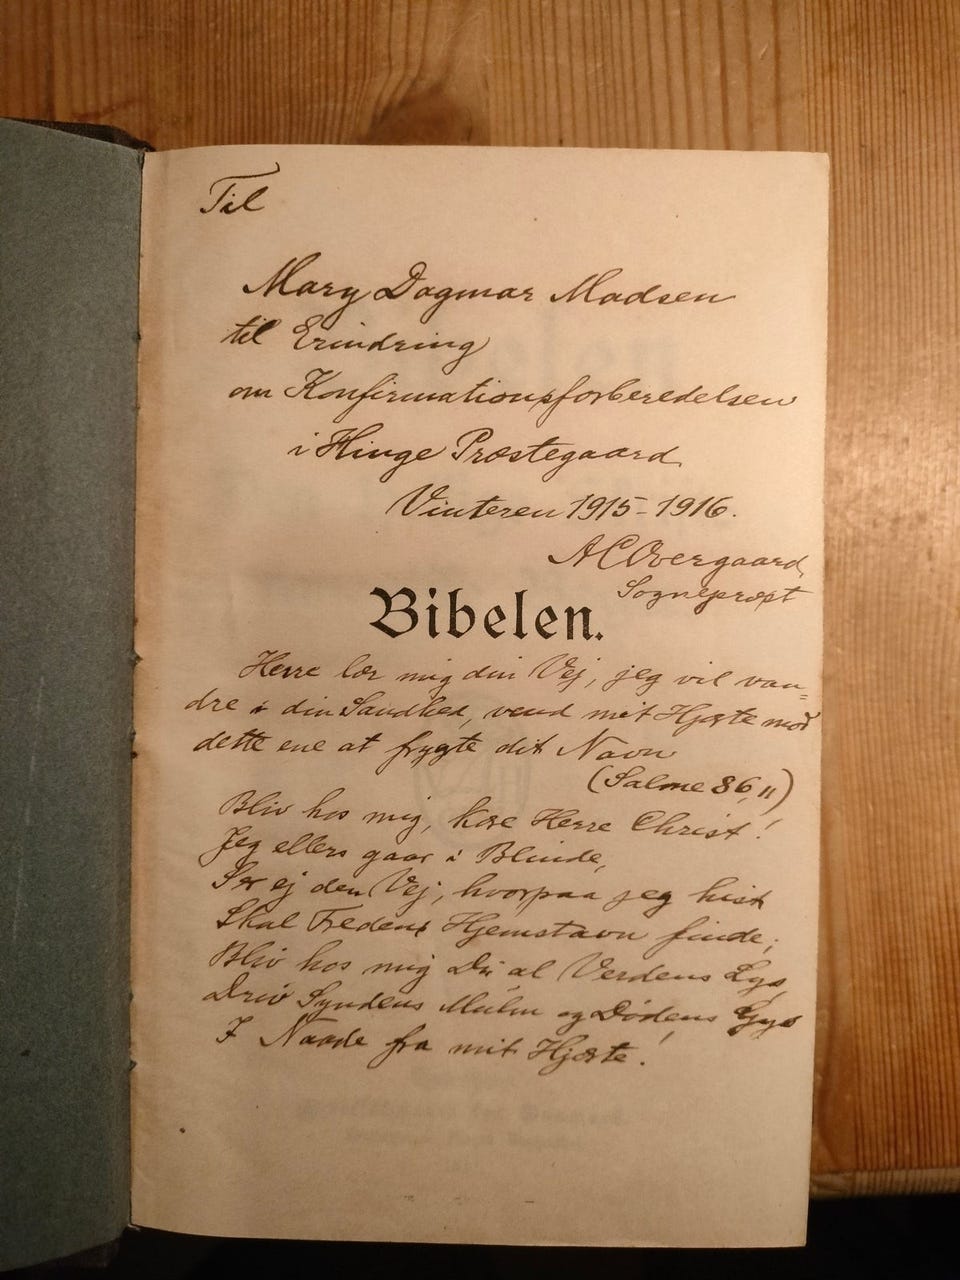 Til
Mary Dagmar Madsen
til Erindring
om Konfirmationsforberedelsen
i Hinge Præstegaard
Vinteren 1915-1916.
AC Overgaard
Sognepræst
Bibelen.
Herre lær mig din Vej, jeg vil van=
dre i din Sandhed, vend mit Hjærte mod
dette ene at frygte dit Navn
(Salme 86,11)
Bliv hos mig, kære Herre Christ!
Jeg ellers gaar i Blinde,
Ser ej den Vej, hvorpaa jeg hist
Skal Fredens Hjemstavn finde;
Bliv hos mig Du al Verdens Lys,
Driv Syndens Mulm og Dødens Gys
I Naade fra mit Hjærte!